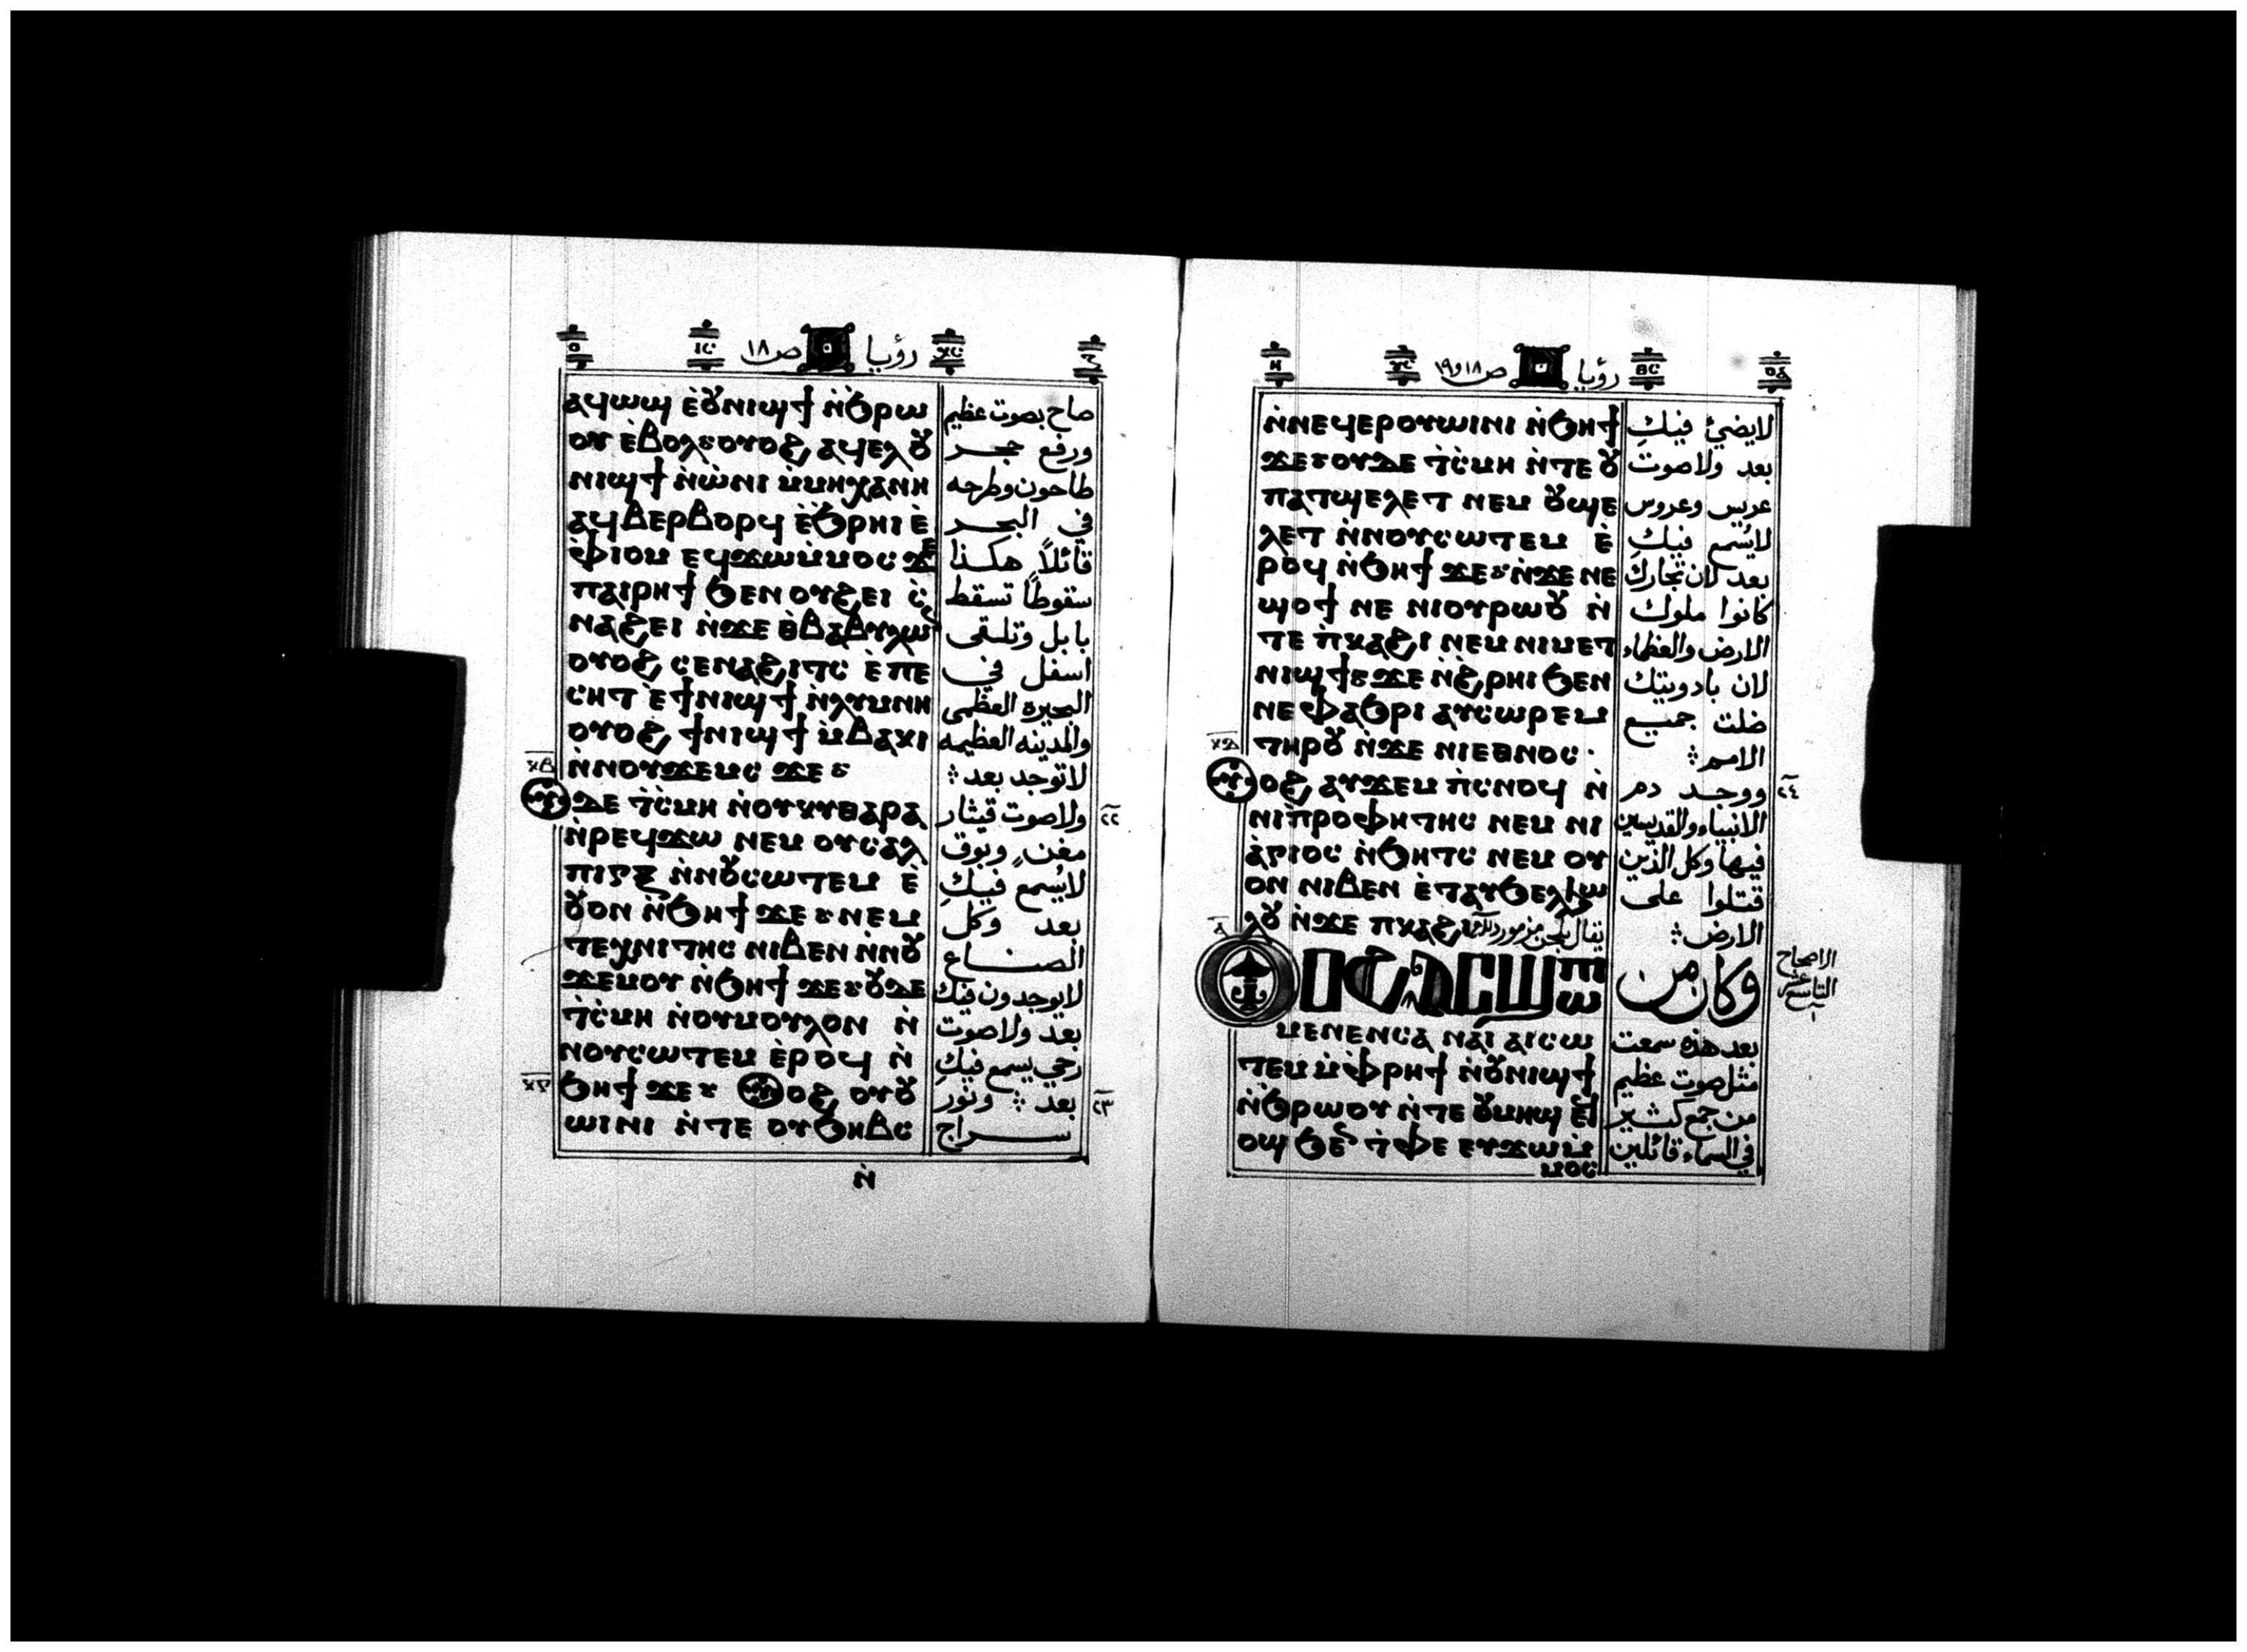 رؤيا ص١٨
ⲁϥⲱϣ ⲉ̀ⲟⲩⲛⲓϣϯ ⲛ̀ϧⲣⲱ
ⲟⲩ ⲉ̀ⲃⲟⲗ ⲟⲩⲟϩ ⲁϥⲉⲗ ⲟⲩ
ⲛⲓϣϯ ⲛ̀ⲱ̀ⲛⲓ ⲙ̀ⲙⲏⲭⲁⲛⲏ
ⲁϥⲃⲉⲣⲃⲟⲣϥ ⲉ̀ϧⲣⲏⲓ ⲉ̀
ⲫ̀ⲓⲟⲙ ⲉϥϫⲱⲙ̀ⲙⲟⲥ ϫⲉ
ⲡⲁⲓⲣⲏϯ ϧⲉⲛ ⲟⲩϩⲉⲓ ⲥ̀
ⲛⲁϩⲉⲓ ⲛ̀ϫⲉ ⲑ̀ⲃⲁⲃⲩⲗⲱ
ⲟⲩⲟϩ ⲥⲉⲛⲁϩⲓⲧⲥ ⲉ̀ⲡⲉ
ⲥⲏⲧ ⲉ̀ϯⲛⲓϣϯ ⲛ̀ⲗⲩⲙⲛⲏ
ⲟⲩⲟϩ ϯⲛⲓϣϯ ⲙ̀ⲃⲁⲕⲓ
ⲛ̀ⲛⲟⲩϫⲉⲙⲥ ϫⲉ
ⲕⲃ
ⲇⲉ ⲧ̀ⲥ̀ⲙⲏ ⲛ̀ⲟⲩⲕⲩⲑⲁⲣⲁ
ⲛ̀ⲣⲉϥϫⲱ ⲛⲉⲙ ⲟⲩⲥⲁⲗ
ⲡⲓⲅⲝ ⲛ̀ⲛⲟⲩⲥⲱⲧⲉⲙ ⲉ̀
ⲟⲩⲟⲛ ⲛ̀ϧⲏϯ ϫⲉ ⲛⲉⲙ
ⲧⲉⲭⲛⲓⲧⲏⲥ ⲛⲓⲃⲉⲛ ⲛ̀ⲛⲟⲩ
ϫⲉⲙⲟⲩ ⲛ̀ϧⲏϯ ϫⲉ ⲟⲩⲇⲉ
ⲧ̀ⲥ̀ⲙⲏ ⲛ̀ⲟⲩⲙⲟⲩⲗⲟⲛ ⲛ̀
ⲛⲟⲩⲥⲱⲧⲉⲙ ⲉ̀ⲣⲟϥ ⲛ̀
ⲕⲅ
ϧⲏϯ ϫⲉ ⲟⲩⲟϩ ⲟⲩⲟⲩ
ⲱⲓⲛⲓ ⲛ̀ⲧⲉ ⲟⲩϧⲏⲃⲥ
ⲛ̀
صاح بصوت عظيم
ورفع حجر
طاحون وطرحه
في البحر
قائلاً هكذا
سقوطاً تسقط
بابل وتلقى
اسفل في
البحيرة العظمى
والمدينه العظيمه
لا توجد بعد
٢٢
ولا صوت قيثار
مغنٍ وبوق
لا يُسمع فيكِ
بعد وكل
الصناع
لا يوجدون فيك
بعد ولا صوت
رحي يسمع فيكِ
٢٣
بعد ⁘ ونور
سراج
رؤيا ص١٨و١٩
ⲛ̀ⲛⲉϥⲉⲣⲟⲩⲱⲓⲛⲓ ⲛ̀ϧⲏϯ
ϫⲉ ⲟⲩⲇⲉ ⲧ̀ⲥ̀ⲙⲏ ⲛ̀ⲧⲉ ⲟⲩ
ⲡⲁⲧϣⲉⲗⲉⲧ ⲛⲉⲙ ⲟⲩϣⲉ
ⲗⲉⲧ ⲛ̀ⲛⲟⲩⲥⲱⲧⲉⲙ ⲉ̀
ⲣⲟϥ ⲛ̀ϧⲏϯ ϫⲉ ⲛ̀ϫⲉ ⲛⲉ
ϣⲟϯ ⲛⲉ ⲛⲓⲟⲩⲣⲱⲟⲩ ⲛ̀
ⲧⲉ ⲡ̀ⲕⲁϩⲓ ⲛⲉⲙ ⲛⲓⲙⲉⲧ
ⲛⲓϣϯ ϫⲉ ⲛ̀ϩ̀ⲣⲏⲓ ϧⲉⲛ
ⲛⲉ ⲫⲁϧⲣⲓ ⲁⲩⲥⲱⲣⲉⲙ
ⲧⲏⲣⲟⲩ ⲛ̀ϫⲉ ⲛⲓⲉⲑⲛⲟⲥ
ⲕⲇ
ⲟϩ ⲁⲩϫⲉⲙ ⲡ̀ⲥⲛⲟϥ ⲛ̀
ⲛⲓⲡ̀ⲣⲟⲫⲏⲧⲏⲥ ⲛⲉⲙ ⲛⲓ
ⲁ̀ⲅⲓⲟⲥ ⲛ̀ϧⲏⲧⲥ ⲛⲉⲙ ⲟⲩ
ⲟⲛ ⲛⲓⲃⲉⲛ ⲉ̀ⲧⲁⲩϧⲉⲗϧⲱ
ⲗⲟⲩ ⲛ̀ϫⲉ ⲡⲕⲁϩⲓ
ⲙⲉⲛⲉⲛⲥⲁ ⲛⲁⲓ ⲁⲓⲥⲱ
ⲧⲉⲙ ⲙ̀ⲫ̀ⲣⲏϯ ⲛ̀ⲟⲩⲛⲓϣϯ
ⲛ̀ϧⲣⲱⲟⲩ ⲛ̀ⲧⲉ ⲟⲩⲙⲏϣ ⲉϥ
ⲟϣ ϧⲉ ⲧ̀ⲫⲉ ⲉⲩϫⲱⲙ̀
ⲙⲟⲥ
لا يضئ فيكِ
بعد ولا صوت
عريس وعروس
لا يُسمع فيكِ
بعد لان تجاركِ
كانوا ملوك
الارض والعظماء
لان بادويتك
ضلت جميع
الامم
٢٤
ووجد دم
الانبياء والقديسين
فيها وكل الذين
قتلوا على
الارض
الاصحاح
التاسع عشر
وكان من
بعد هذه سمعت
مثل صوت عظيم
من جمع كثير
في السماء قائلين